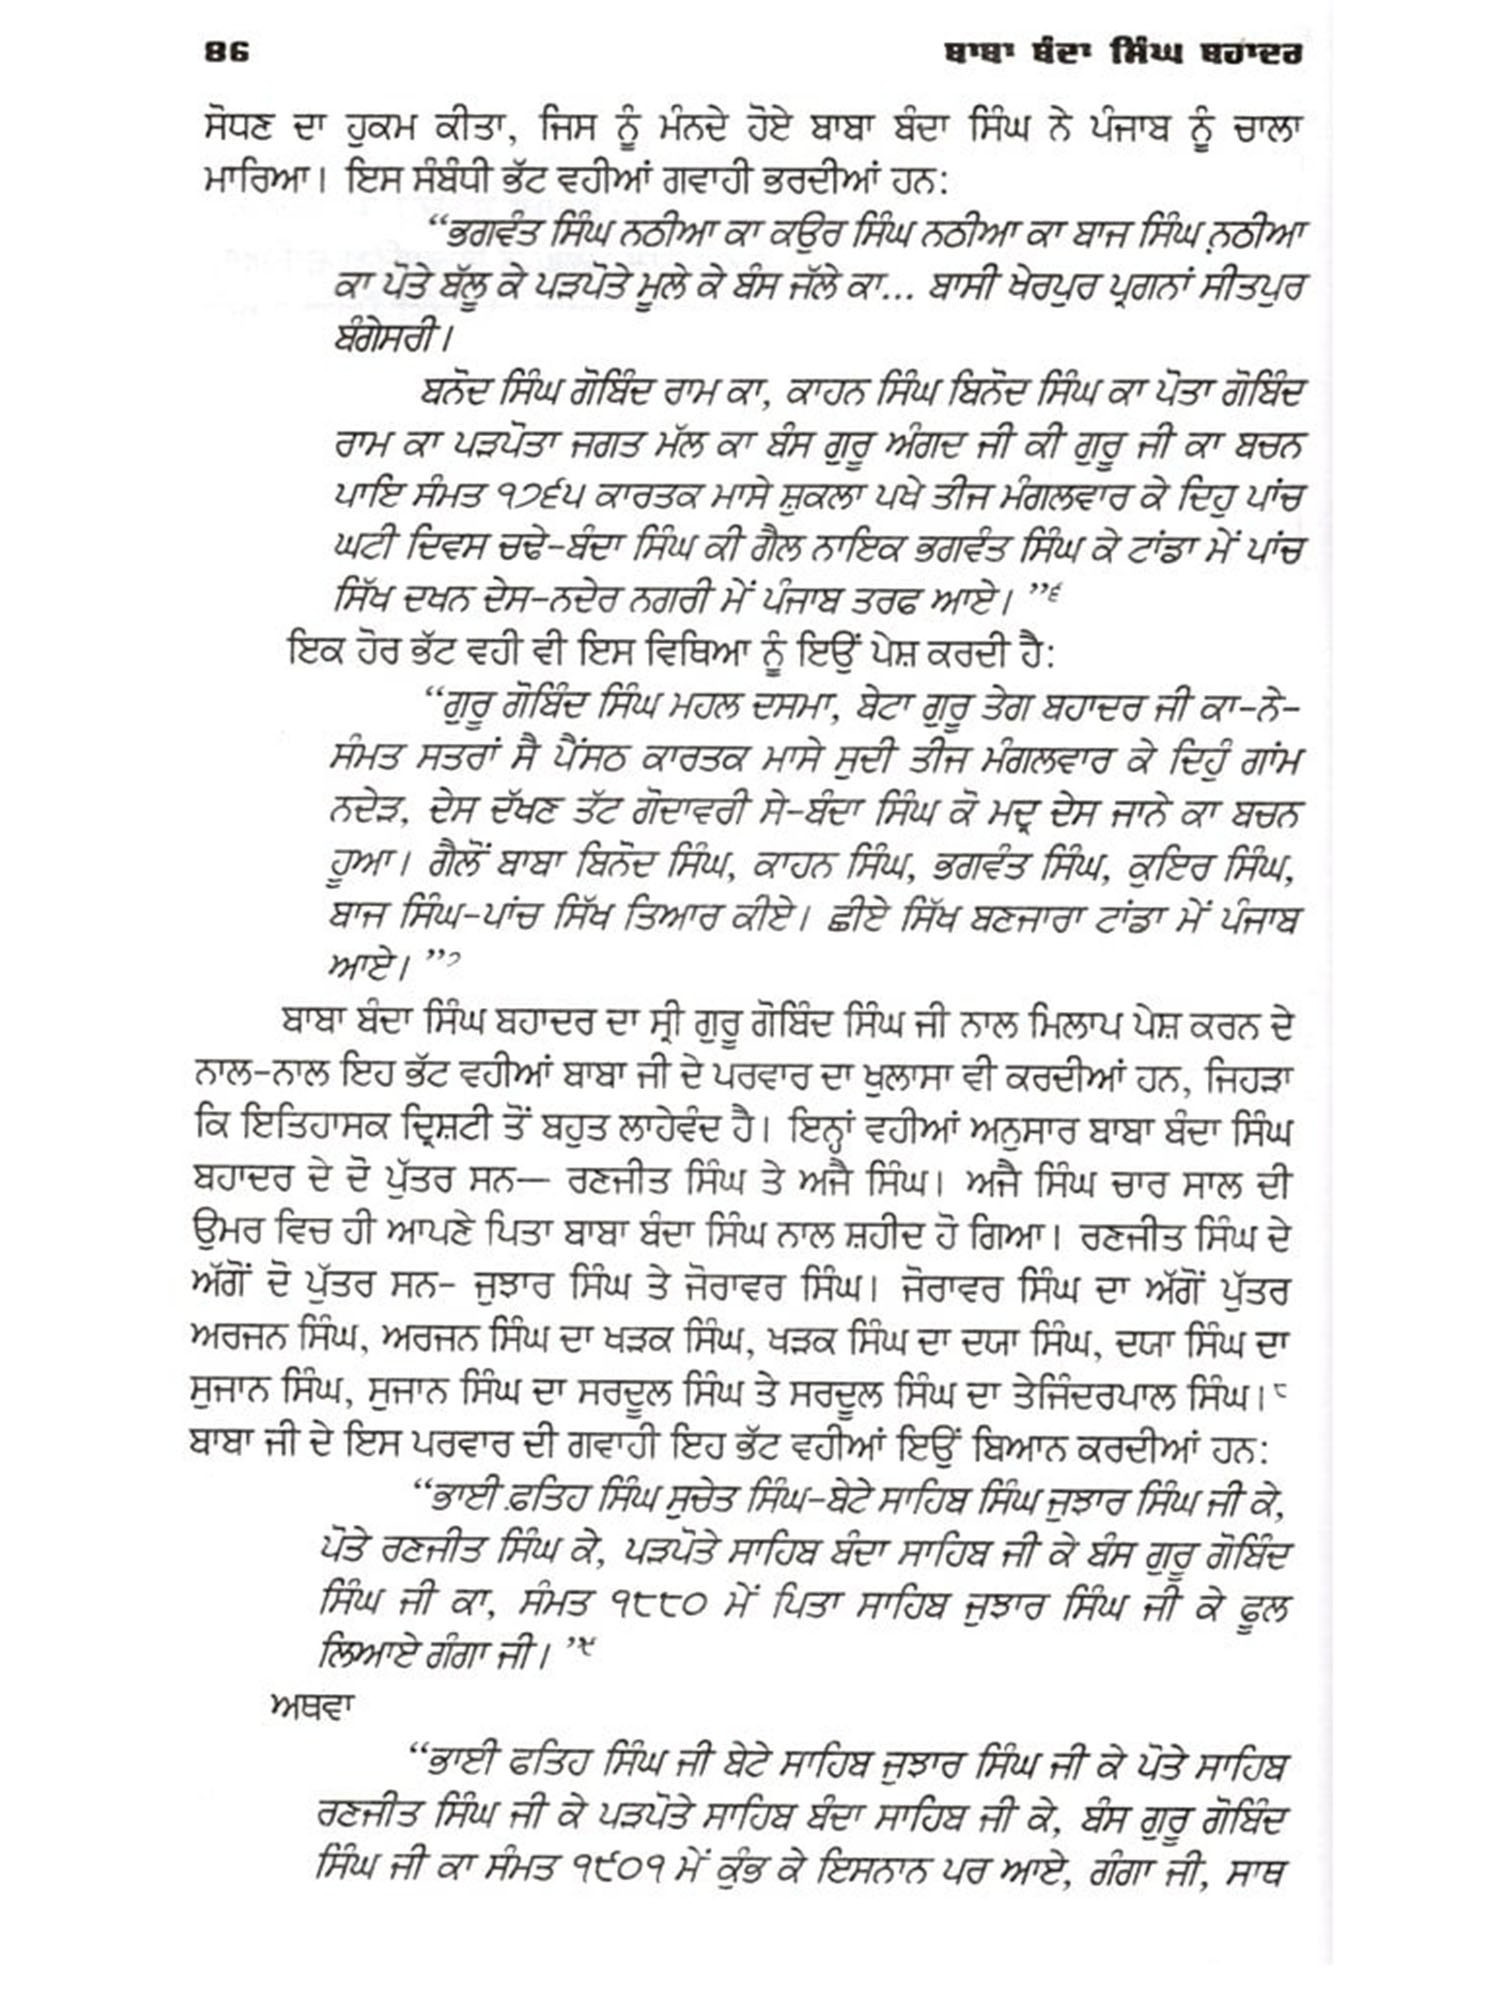 86 ਬਾਬਾ ਬੰਦਾ ਸਿੰਘ ਬਹਾਦਰ
ਸੋਧਣ ਦਾ ਹੁਕਮ ਕੀਤਾ, ਜਿਸ ਨੂੰ ਮੰਨਦੇ ਹੋਏ ਬਾਬਾ ਬੰਦਾ ਸਿੰਘ ਨੇ ਪੰਜਾਬ ਨੂੰ ਚਾਲਾ
ਮਾਰਿਆ। ਇਸ ਸੰਬੰਧੀ ਭੱਟ ਵਹੀਆਂ ਗਵਾਹੀ ਭਰਦੀਆਂ ਹਨ:
“ਭਗਵੰਤ ਸਿੰਘ ਨਠੀਆ ਕਾ ਕਉਰ ਸਿੰਘ ਨਠੀਆ ਕਾ ਬਾਜ ਸਿੰਘ ਨਠੀਆ
ਕਾ ਪੋਤੇ ਬੱਲੂ ਕੇ ਪੜਪੋਤੇ ਮੂਲੇ ਕੇ ਬੰਸ ਜੱਲੇ ਕਾ... ਬਾਸੀ ਖੇਰਪੁਰ ਪ੍ਰਗਨਾਂ ਸੀਤਪੁਰ
ਬੰਗੇਸਰੀ।
ਬਨੋਦ ਸਿੰਘ ਗੋਬਿੰਦ ਰਾਮ ਕਾ, ਕਾਹਨ ਸਿੰਘ ਬਿਨੋਦ ਸਿੰਘ ਕਾ ਪੋਤਾ ਗੋਬਿੰਦ
ਰਾਮ ਕਾ ਪੜਪੋਤਾ ਜਗਤ ਮੱਲ ਕਾ ਬੰਸ ਗੁਰੂ ਅੰਗਦ ਜੀ ਕੀ ਗੁਰੂ ਜੀ ਕਾ ਬਚਨ
ਪਾਇ ਸੰਮਤ ੧੭੬੫ ਕਾਰਤਕ ਮਾਸੇ ਸ਼ੁਕਲਾ ਪਖੇ ਤੀਜ ਮੰਗਲਵਾਰ ਕੇ ਦਿਹੁ ਪਾਂਚ
ਘਟੀ ਦਿਵਸ ਚਢੇ-ਬੰਦਾ ਸਿੰਘ ਕੀ ਗੈਲ ਨਾਇਕ ਭਗਵੰਤ ਸਿੰਘ ਕੇ ਟਾਂਡਾ ਮੇਂ ਪਾਂਚ
ਸਿੱਖ ਦਖਨ ਦੇਸ-ਨਦੇਰ ਨਗਰੀ ਮੇਂ ਪੰਜਾਬ ਤਰਫ ਆਏ। ”੬
ਇਕ ਹੋਰ ਭੱਟ ਵਹੀ ਵੀ ਇਸ ਵਿਥਿਆ ਨੂੰ ਇਉਂ ਪੇਸ਼ ਕਰਦੀ ਹੈ:
“ਗੁਰੂ ਗੋਬਿੰਦ ਸਿੰਘ ਮਹਲ ਦਸਮਾ, ਬੇਟਾ ਗੁਰੂ ਤੇਗ ਬਹਾਦਰ ਜੀ ਕਾ-ਨੇ-
ਸੰਮਤ ਸਤਰਾਂ ਸੈ ਪੈਂਸਠ ਕਾਰਤਕ ਮਾਸੇ ਸੁਦੀ ਤੀਜ ਮੰਗਲਵਾਰ ਕੇ ਦਿਹੁੰ ਗਾਂਮ
ਨਦੇੜ, ਦੇਸ ਦੱਖਣ ਤੱਟ ਗੋਦਾਵਰੀ ਸੇ-ਬੰਦਾ ਸਿੰਘ ਕੋ ਮਦ੍ਰ ਦੇਸ ਜਾਨੇ ਕਾ ਬਚਨ
ਹੂਆ। ਗੈਲੋਂ ਬਾਬਾ ਬਿਨੋਦ ਸਿੰਘ, ਕਾਹਨ ਸਿੰਘ, ਭਗਵੰਤ ਸਿੰਘ, ਕੁਇਰ ਸਿੰਘ,
ਬਾਜ ਸਿੰਘ-ਪਾਂਚ ਸਿੱਖ ਤਿਆਰ ਕੀਏ। ਛੀਏ ਸਿੱਖ ਬਣਜਾਰਾ ਟਾਂਡਾ ਮੇਂ ਪੰਜਾਬ
ਆਏ। ”੭
ਬਾਬਾ ਬੰਦਾ ਸਿੰਘ ਬਹਾਦਰ ਦਾ ਸ੍ਰੀ ਗੁਰੂ ਗੋਬਿੰਦ ਸਿੰਘ ਜੀ ਨਾਲ ਮਿਲਾਪ ਪੇਸ਼ ਕਰਨ ਦੇ
ਨਾਲ-ਨਾਲ ਇਹ ਭੱਟ ਵਹੀਆਂ ਬਾਬਾ ਜੀ ਦੇ ਪਰਵਾਰ ਦਾ ਖੁਲਾਸਾ ਵੀ ਕਰਦੀਆਂ ਹਨ, ਜਿਹੜਾ
ਕਿ ਇਤਿਹਾਸਕ ਦ੍ਰਿਸ਼ਟੀ ਤੋਂ ਬਹੁਤ ਲਾਹੇਵੰਦ ਹੈ। ਇਨ੍ਹਾਂ ਵਹੀਆਂ ਅਨੁਸਾਰ ਬਾਬਾ ਬੰਦਾ ਸਿੰਘ
ਬਹਾਦਰ ਦੇ ਦੋ ਪੁੱਤਰ ਸਨ— ਰਣਜੀਤ ਸਿੰਘ ਤੇ ਅਜੈ ਸਿੰਘ। ਅਜੈ ਸਿੰਘ ਚਾਰ ਸਾਲ ਦੀ
ਉਮਰ ਵਿਚ ਹੀ ਆਪਣੇ ਪਿਤਾ ਬਾਬਾ ਬੰਦਾ ਸਿੰਘ ਨਾਲ ਸ਼ਹੀਦ ਹੋ ਗਿਆ। ਰਣਜੀਤ ਸਿੰਘ ਦੇ
ਅੱਗੋਂ ਦੋ ਪੁੱਤਰ ਸਨ- ਜੁਝਾਰ ਸਿੰਘ ਤੇ ਜੋਰਾਵਰ ਸਿੰਘ। ਜੋਰਾਵਰ ਸਿੰਘ ਦਾ ਅੱਗੋਂ ਪੁੱਤਰ
ਅਰਜਨ ਸਿੰਘ, ਅਰਜਨ ਸਿੰਘ ਦਾ ਖੜਕ ਸਿੰਘ, ਖੜਕ ਸਿੰਘ ਦਾ ਦਯਾ ਸਿੰਘ, ਦਯਾ ਸਿੰਘ ਦਾ
ਸੁਜਾਨ ਸਿੰਘ, ਸੁਜਾਨ ਸਿੰਘ ਦਾ ਸਰਦੂਲ ਸਿੰਘ ਤੇ ਸਰਦੂਲ ਸਿੰਘ ਦਾ ਤੇਜਿੰਦਰਪਾਲ ਸਿੰਘ।੮
ਬਾਬਾ ਜੀ ਦੇ ਇਸ ਪਰਵਾਰ ਦੀ ਗਵਾਹੀ ਇਹ ਭੱਟ ਵਹੀਆਂ ਇਉਂ ਬਿਆਨ ਕਰਦੀਆਂ ਹਨ:
“ਭਾਈ ਫ਼ਤਿਹ ਸਿੰਘ ਸੁਚੇਤ ਸਿੰਘ-ਬੇਟੇ ਸਾਹਿਬ ਸਿੰਘ ਜੁਝਾਰ ਸਿੰਘ ਜੀ ਕੇ,
ਪੋਤੇ ਰਣਜੀਤ ਸਿੰਘ ਕੇ, ਪੜਪੋਤੇ ਸਾਹਿਬ ਬੰਦਾ ਸਾਹਿਬ ਜੀ ਕੇ ਬੰਸ ਗੁਰੂ ਗੋਬਿੰਦ
ਸਿੰਘ ਜੀ ਕਾ, ਸੰਮਤ ੧੮੮੦ ਮੇਂ ਪਿਤਾ ਸਾਹਿਬ ਜੁਝਾਰ ਸਿੰਘ ਜੀ ਕੇ ਫੂਲ
ਲਿਆਏ ਗੰਗਾ ਜੀ। ’੯
ਅਥਵਾ
“ਭਾਈ ਫਤਿਹ ਸਿੰਘ ਜੀ ਬੇਟੇ ਸਾਹਿਬ ਜੁਝਾਰ ਸਿੰਘ ਜੀ ਕੇ ਪੋਤੇ ਸਾਹਿਬ
ਰਣਜੀਤ ਸਿੰਘ ਜੀ ਕੇ ਪੜਪੋਤੇ ਸਾਹਿਬ ਬੰਦਾ ਸਾਹਿਬ ਜੀ ਕੇ, ਬੰਸ ਗੁਰੂ ਗੋਬਿੰਦ
ਸਿੰਘ ਜੀ ਕਾ ਸੰਮਤ ੧੯੦੧ ਮੇਂ ਕੁੰਭ ਕੇ ਇਸਨਾਨ ਪਰ ਆਏ, ਗੰਗਾ ਜੀ, ਸਾਥ